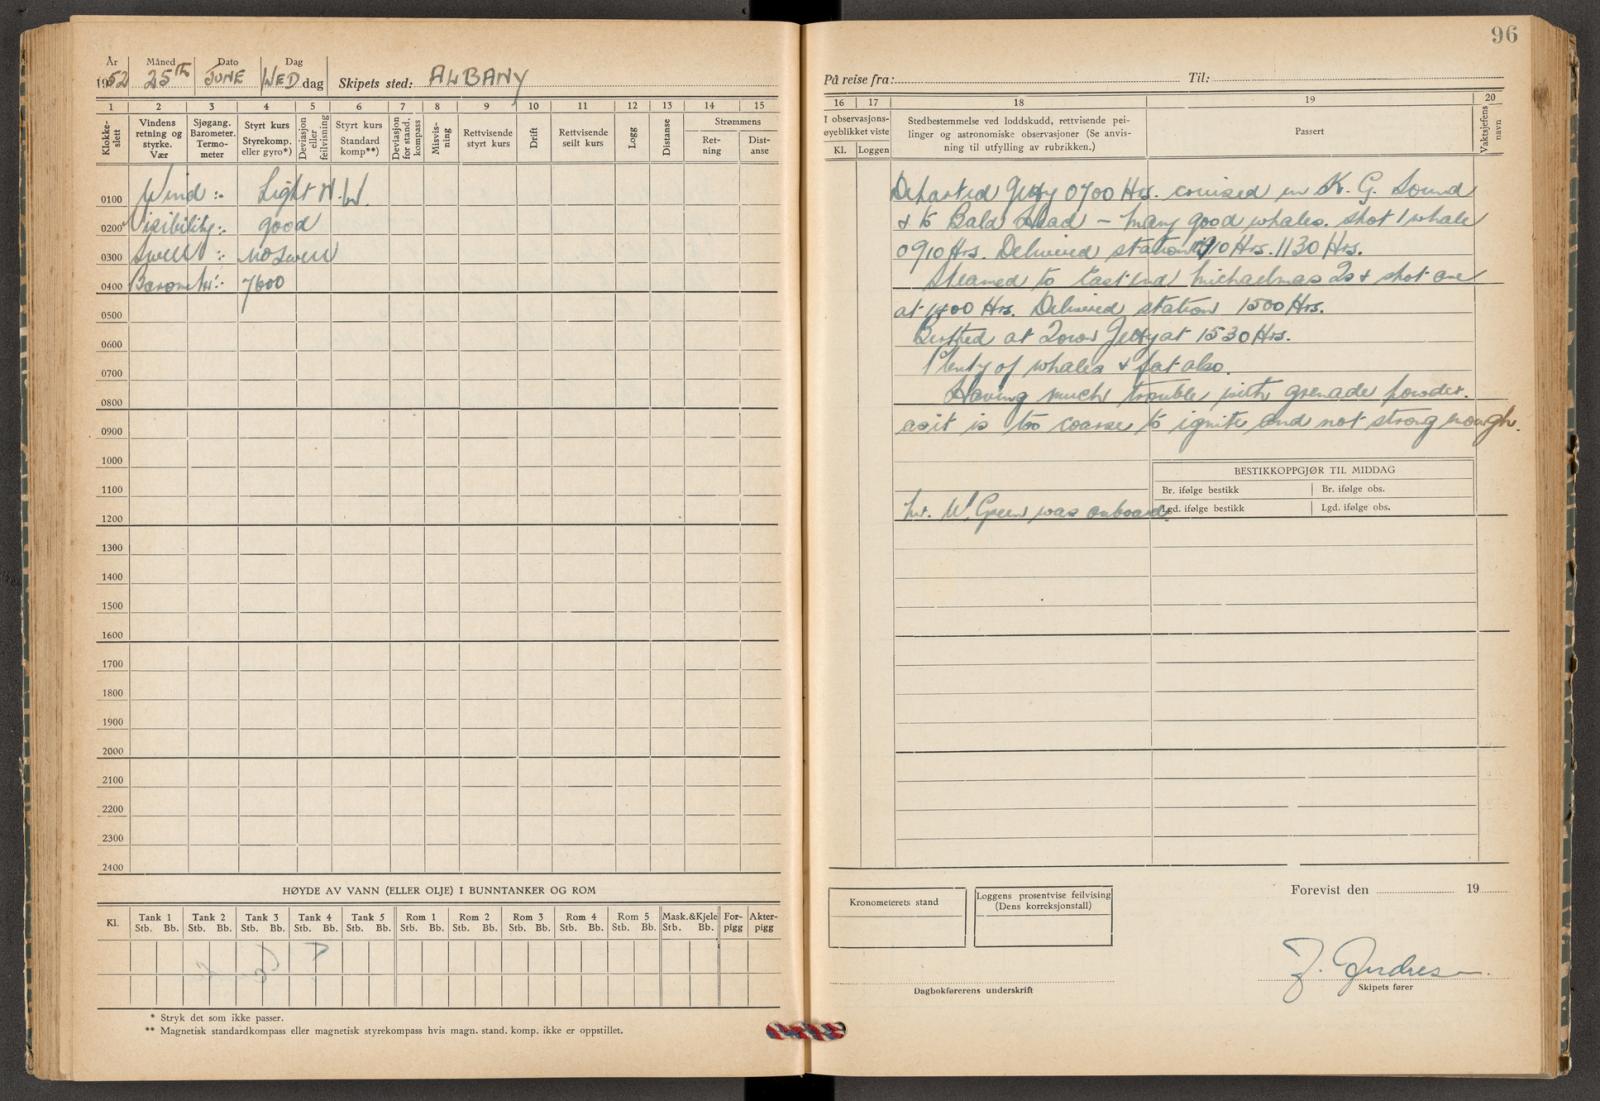 År Måned Dato Dag
1952 25TH JUNE WED dag Skipets sted: ALBANY
1 2 3 4 5 6 7 8 9 10 11 12 13 14 15
Klokkeslett
Vindens retning og styrke. Vær
Sjøgang. Barometer. Termometer
Styrt kurs Styrekomp. eller gyro*)
Deviasjon eller feilvisning
Styrt kurs Standard komp**)
Deviasjon for stand. kompass
Misvisning
Rettvisende styrt kurs
Drift
Rettvisende seilt kurs
Logg
Distanse
Strømmens
Retning
Distanse
0100 Wind :- Light N.W.
0200 Visibility:- good
0300 Swell :- No Swell
0400 Barometer:- 7600
0500
0600
0700
0800
0900
1000
1100
1200
1300
1400
1500
1600
1700
1800
1900
2000
2100
2200
2300
2400
HØYDE AV VANN (ELLER OLJE) I BUNNTANKER OG ROM
Kl. Tank 1 Tank 2 Tank 3 Tank 4 Tank 5 Rom 1 Rom 2 Rom 3 Rom 4 Rom 5 Mask.&Kjele For-pigg Akter-pigg
Stb. Bb. Stb. Bb. Stb. Bb. Stb. Bb. Stb. Bb. Stb. Bb. Stb. Bb. Stb. Bb. Stb. Bb. Stb. Bb. Stb. Bb.
* Stryk det som ikke passer.
** Magnetisk standardkompass eller magnetisk styrekompass hvis magn. stand. komp. ikke er oppstillet.
96
På reise fra: Til:
16 17 18 19 20
I observasjonsøyeblikket viste
Kl. Loggen
Stedbestemmelse ved loddskudd, rettvisende peilinger og astronomiske observasjoner (Se anvisning til utfylling av rubrikken.)
Passert
Vaktsjefens navn
Departed Jetty 0700 Hrs. cruised in K. G. Sound
& to Bald Head - Many good whales. shot 1 whale
0910 Hrs. Delivered station Hrs. 1130 Hrs.
Steamed to East end Michaelmas Is & shot one
at 1400 Hrs. Delivered station 1500 Hrs.
Berthed at Town Jetty at 1530 Hrs.
Plenty of whales & fat also.
Having much trouble with grenade powder.
as it is too coarse to ignite and not strong enough.
BESTIKKOPPGJØR TIL MIDDAG
Br. ifølge bestikk Br. ifølge obs.
Lgd. ifølge bestikk Lgd. ifølge obs.
Mr. W. Green was onboard.
Kronometerets stand
Loggens prosentvise feilvising
(Dens korreksjonstall)
Forevist den 19
Dagbokførerens underskrift
Skipets fører